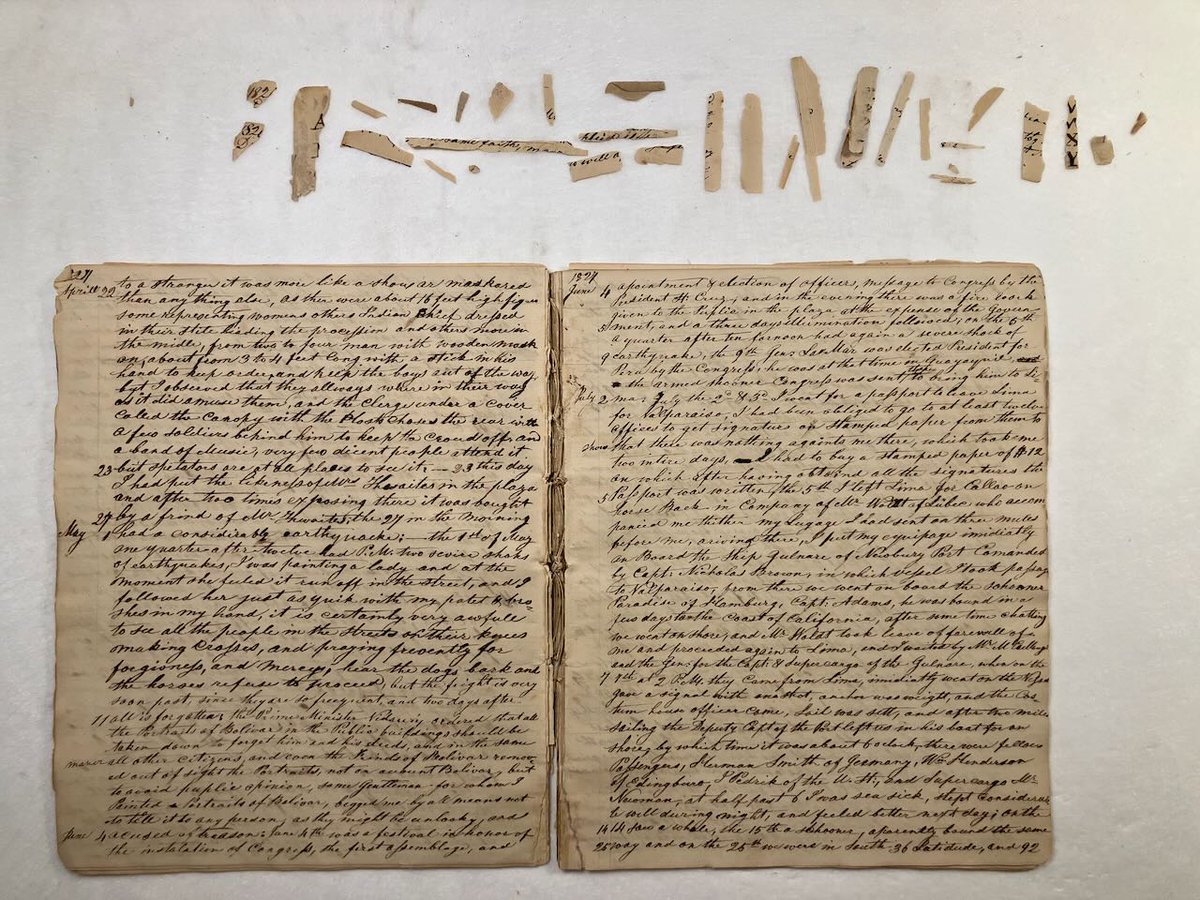 182
182
A
same faith, man
will a
1827
Aprill 22 to a stranger it was more like a show or maskared
than any thing else, as ther were about 16 feet high figur
some representing womens others Indian Chief dressed
in their state leading the procession and others more in
the middle, from two to four man with wooden mask
on, about from 3 to 4 feet long with a stick in his
hand to keep order, and keep the boys out of the way
but I observed that they allways where in their way
as it did amuse them, and the Clerge under a cover
caled the Canopy with the Hosth closes the rear with
a few soldiers behind him to keep the croud off, an
a band of Music, very few decent people attend it
23 but spetators are at all places to see it; — 23 this day
I had put the likeness of Mrs Thwaites in the plaza
and after two times exposing there it was bought
27 by a frind of Mr Thwaites, the 27 in the morning
May 1 had a considerably earthquacke; — the 1st of May
one quarter after twelve had P.M. two sevire shoks
of earthquakes, I was painting a lady and at the
moment she feeled it run off in the street, and I
followed her just as quik with my palet & bru-
shes in my hand, it is certainly very awfule
to see all the people in the streets on their knees
making Crosses, and praying frevently for
forgivness, and Mercy, hear the dogs bark and
the horses refuse to proceed, but the fright is very
soon past, since they are so frequent, and two days after
11 all is forgotten; the Prime Minister Vidaria ordered that all
the Portraits of Bolivar in the Public buildings should be
taken down to forget him and his deeds, and in the same
maner all other citizens, and even the frinds of Bolivar remov-
ed out of sight the Portraits, not on account Bolivar, but
to avoid puplic opinion, some Gentleman for whom I
Painted a Portraits of Bolivar, begged me by all means not
to tell it to any person, as they might be unlocky, and
June 4 accused of treason; June 4th was a festival in honor of
the instalation of Congress, the first assemblage, and
1827
June 4 apointment & election of officers, message to Congress by the
President St Cruz, and in the evening there was a fire work
given to the Puplic in the plaza at the expense of the Govern-
5 ment, and a three days illumination followed; on the 5th
a quarter after ten fornoon had again a severe shock of
9 earthquake, the 9th Jens LaMar was elected President for
Peru by the Congress; he was at that time in Guayaquil, and
the armed shooner Congress was sent to bring him to Li-
July 2 ma; July the 2d & 5d I went for a passport to leave Lima
for Valparaiso, I had been obliged to go to at least twelve
offices to get signature on stamped paper from them to
show that there was nothing againts me there, which took me
two intire days, I had to buy a stamped paper of $12
on which after having obtaind all the signatures the
5 Passport was written, the 5th I left Lima for Callao on
horse Back in Company of Mr Hutt of Lübec who accom
panied me thither my lugage I had sent on three mules
before me, ariving there, I put my equipage imidiatly
on Board the ship Gulnare of Newbury Port Comanded
by Capt. Nicholas Brown, in which vessel I took passage
to Valparaiso, from there we went on board the schooner
Paradise of Hamburg, Capt. Adams, he was bound in a
few days to the Coast of California, after some time chatting
we went on shore, and Mr Hutt took leave of farewell of
me and proceeded again to Lima,
and the Jens for the Capt. & Supercargo of the Gulnare, when on the
7 7th at 2 P.M. they came from Lima, imidiatly went on the Vessel
gave a signal with one shot, anchor was weight, and the cos
tum house officer came, sail was sett, and after two miles
sailing the Deputy Capt of the Port left us in his boat for on
shore, by which time it was about 6 oclock, there were fellow
Passengers, Herman Smith of Germany, Wm Henderson
of Edingburg, J Pedrik of the U. St., and Supercargo Mr
Newman, at half past 6 I was sea sick, slept considerab
le will during night, and feeled better next day; on the
14 14 saw a whale, the 15th a schooner, aparently bound the same
25 way and on the 25th we were in South 36 Latidude, and 92